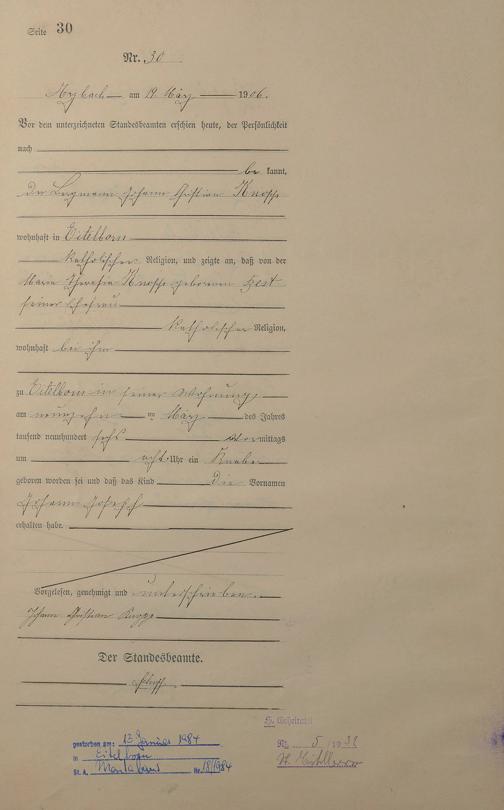 Seite 30
Nr. 30
am 19. März 1906.
Vor dem unterzeichneten Standesbeamten erschien heute, der Persönlichkeit
nach
be kannt,
der Bergmann Johann Christian
wohnhaft in Eitelborn
katholischer Religion, und zeigte an, daß von der
Maria Theresia geborenen
seiner Ehefrau
katholischer Religion,
wohnhaft bei ihm
zu Eitelborn in seiner Wohnung,
am neunzehn ten März des Jahres
tausend neunhundert sechs vor mittags
um acht Uhr ein Knabe
geboren worden sei und daß das Kind die Vornamen
Johann Joseph
erhalten habe.
Vorgelesen, genehmigt und unterschrieben.
Johann Christian
Der Standesbeamte.
gestorben am: 13 Januar 1984
in Eitelborn
St. A. Montabaur Nr. 18/1984
Nr. 5 / 19 38